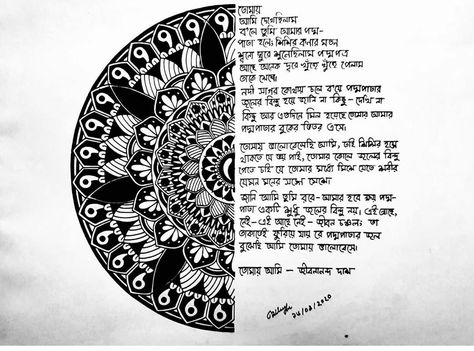 তোমায়
আমি দেখেছিলাম
ব'লে তুমি আমার পদ্ম-
পাতা হলে; শিশির কনার মতন
শূন্যে ঘুরে শুনেছিলাম পদ্মপত্র
আছে অনেক দূরে খুঁজে খুঁজে পেলাম
তাকে শেষে।
নদী সাগর কোথায় চলে ব'য়ে পদ্মপাতার
জলের বিন্দু হয়ে জানি না কিছু-দেখি না
কিছু আর এতদিনে মিল হয়েছে তোমার আমার
পদ্মপাতার বুকের ভিতর এসে।
তোমায় ভালোবেসেছি আমি, তাই শিশির হয়ে
থাকতে যে ভয় পাই, তোমার কোলে জলের বিন্দু
পেতে চাই যে তোমার মধ্যে মিশে যেতে শরীর
যেমন মনের সঙ্গে মেশে।
জানি আমি তুমি রবে-আমার হবে ক্ষয় পদ্ম-
পাতা একটি শুধু জলের বিন্দু নয়। এই আছে,
নেই-এই আছে নেই-জীবন চঞ্চল; তা
তাকাতেই ফুরিয়ে যায় রে পদ্মপাতার জল
বুঝেছি আমি তোমায় ভালোবেসে।
তোমায় আমি - জীবনানন্দ দাশ